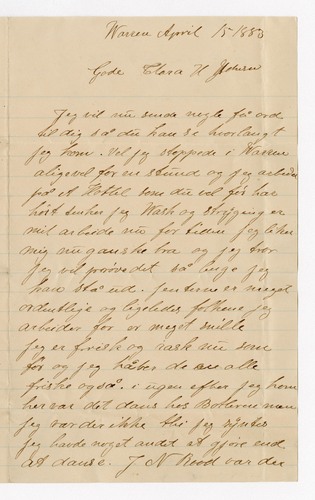 Warren April 15 1883
Gode Clara H Johnson
Jeg vil nu sende nogle få ord
til dig så du kan se hvorlangt
jeg kom. Vel jeg stoppede i Warren
aligevel for en stund og jeg arbeider
på et Hotel som du vel før har
hørt tenker jeg Wash og strygning er
mit arbeide nu for tiden jeg liker
mig nu ganske bra og jeg tror
jeg vil prøve det så lenge jeg
kan stå ud. Jenterne er meget
ordentlige og ligeledes folkene jeg
arbeider for er meget snille
Jeg er frisk og rask nu som
før og jeg håber de er alle
friske også. i ugen efter jeg kom
her var det dans hos men
jeg var der ikke thi jeg syntes
jeg havde noget andet at gjøre end
at danse. J N Rood var der